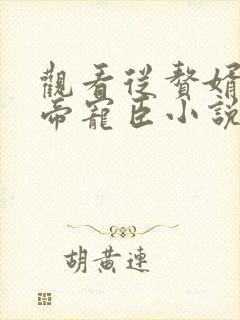 觀看從贅婿
帝寵臣小說
胡黃連